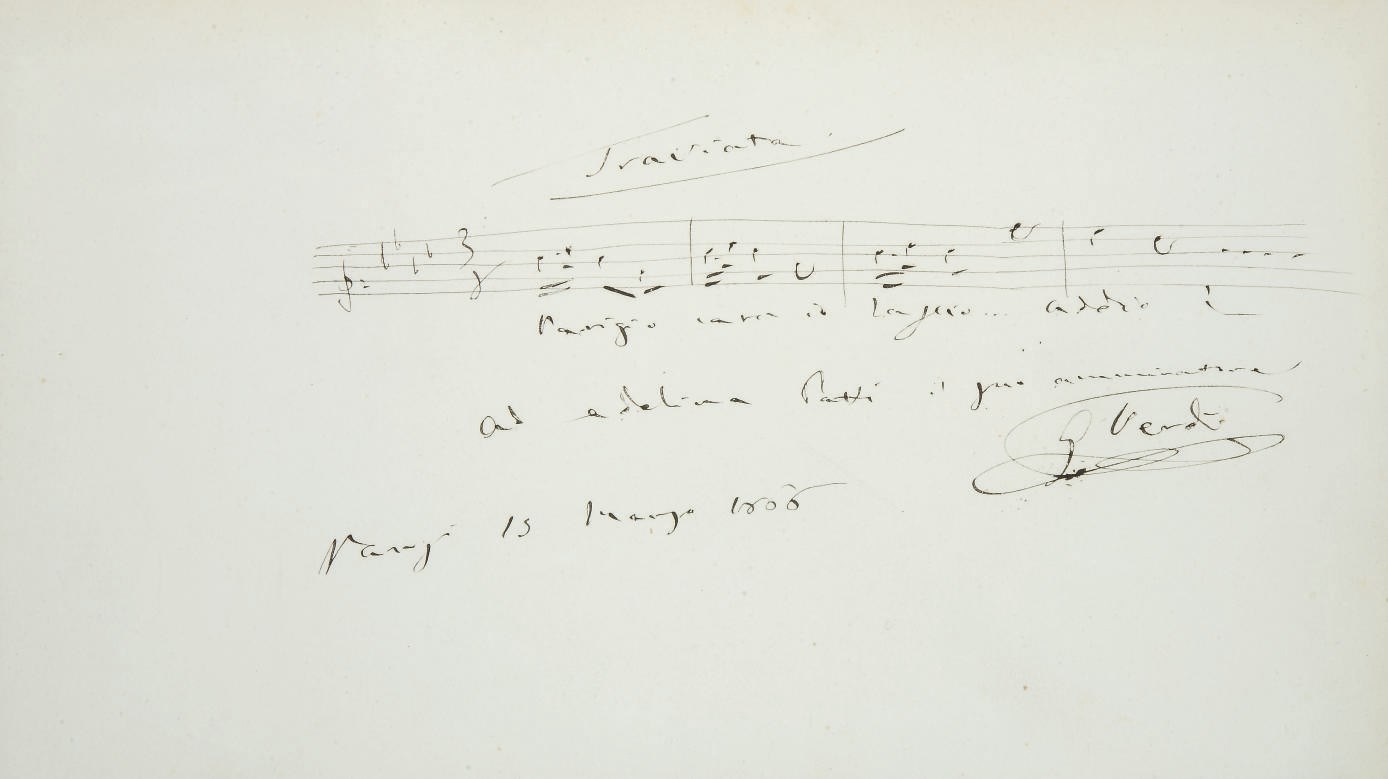 Traviata
Parigi o cara io lascio... addio!
ad adelina Patti il suo ammiratore
G Verdi
Parigi 15 Marzo 1866